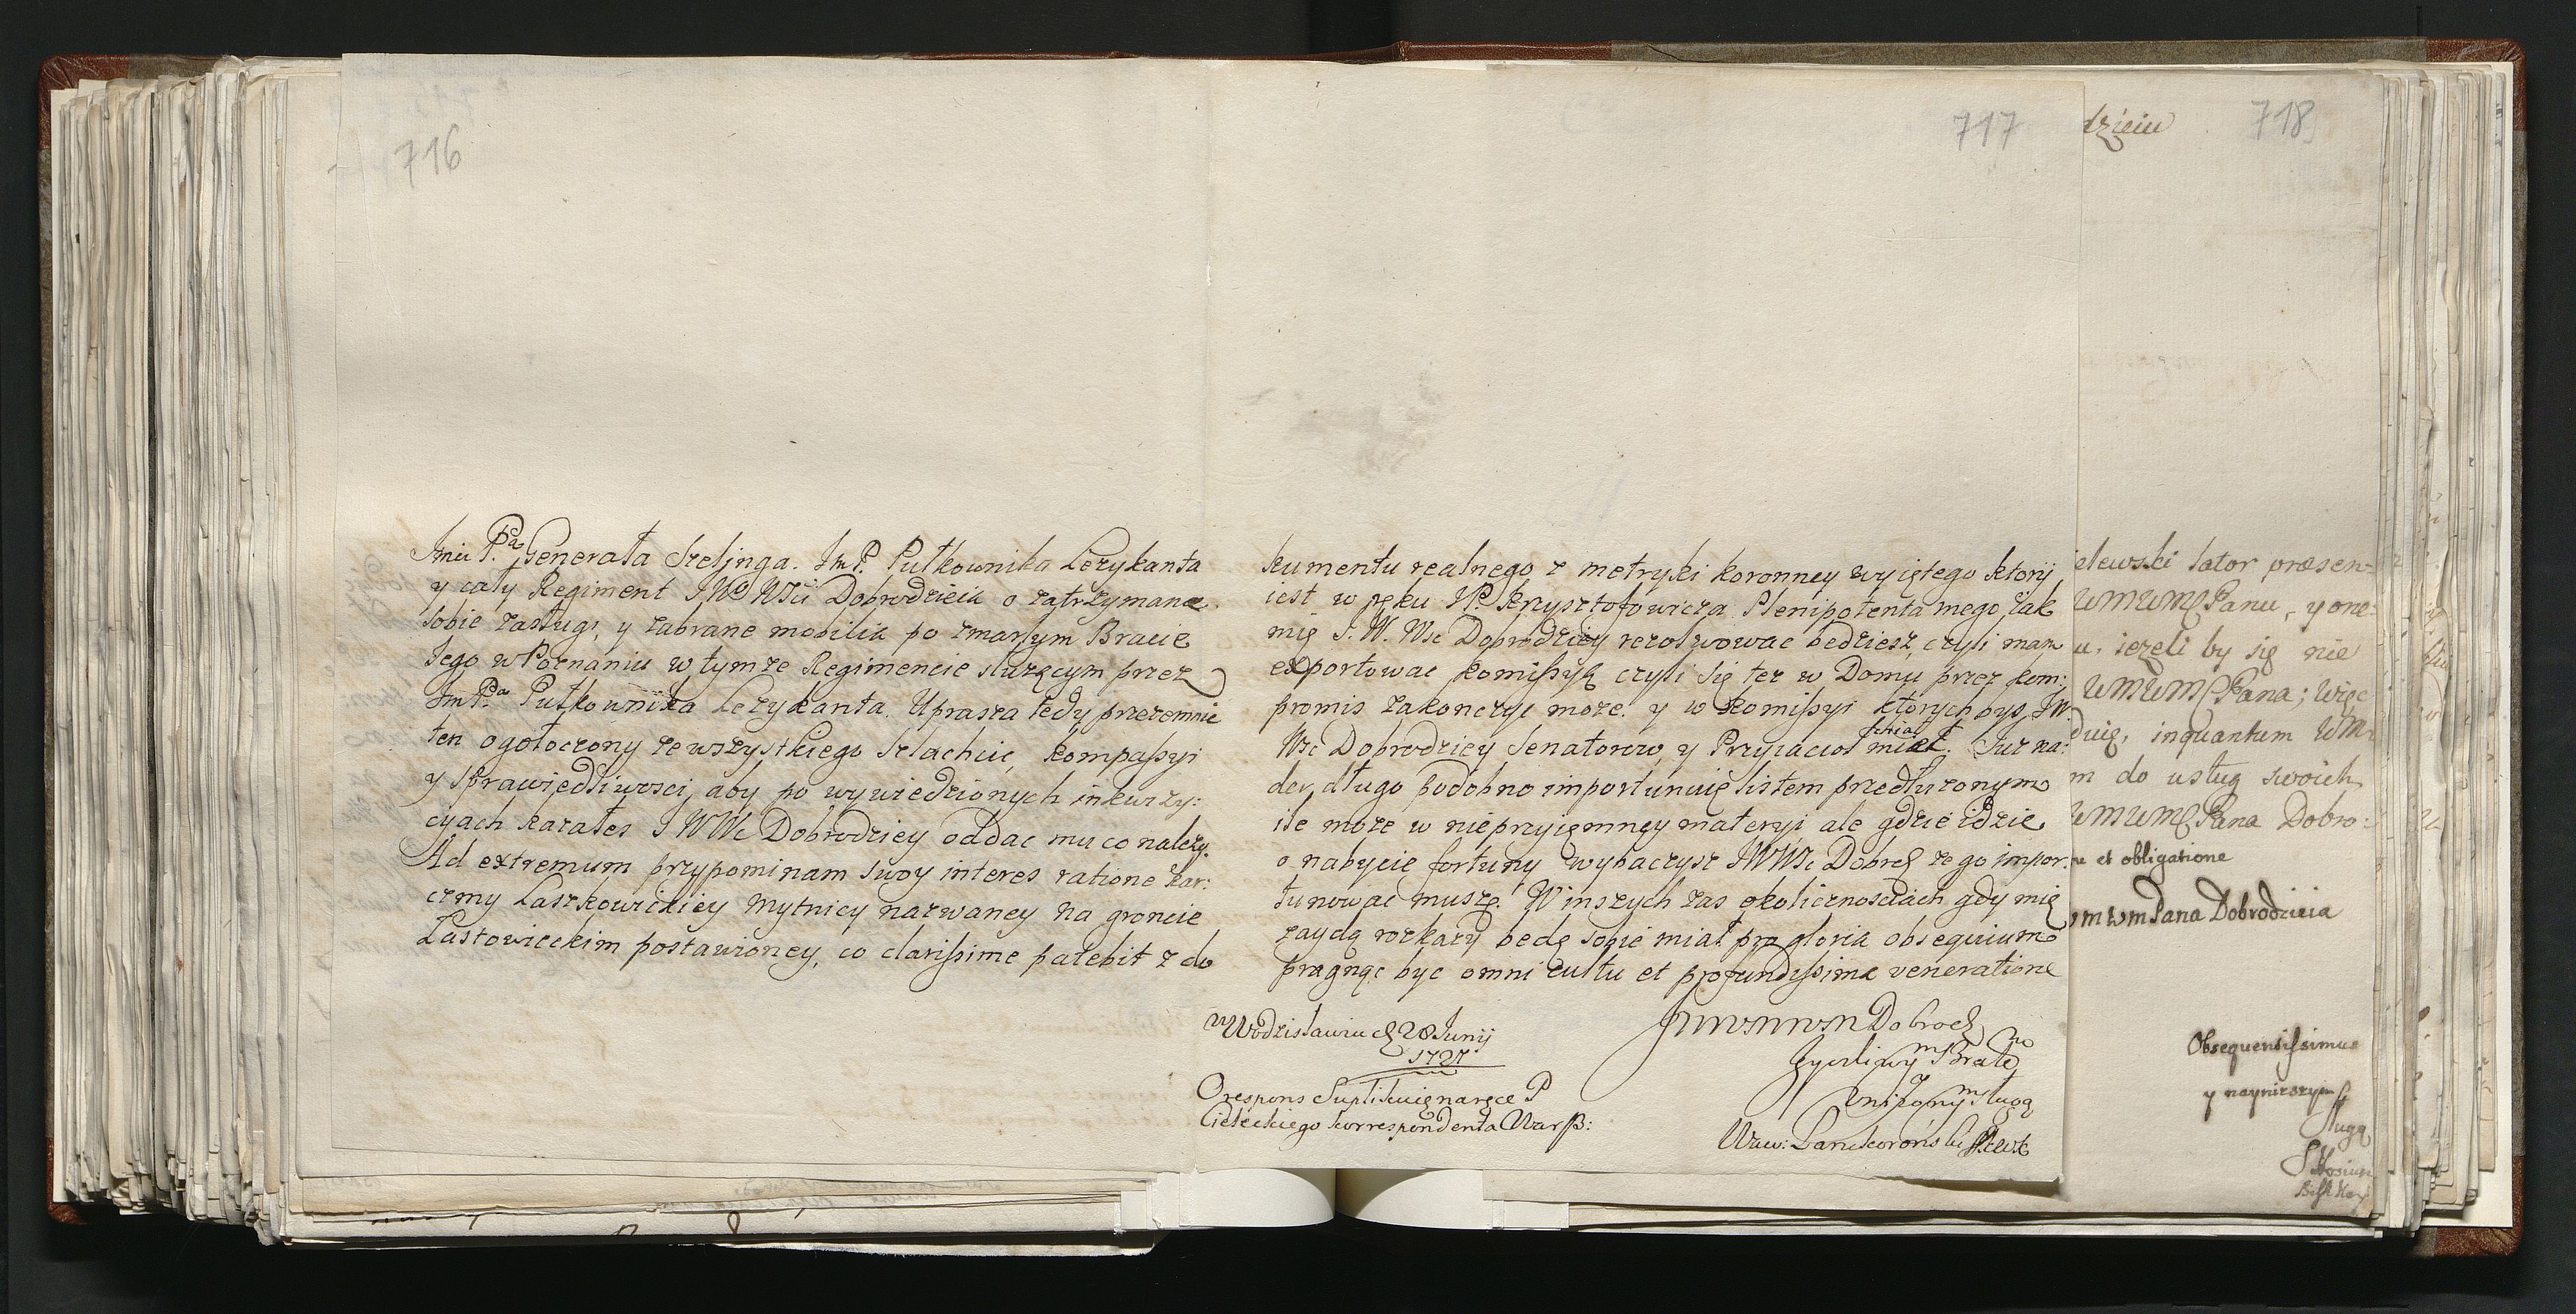 716
Jmci Pa Generała Szeljnga. Jm P. Pułkownika Leżykanta
y cały Regiment JWo WMci Dobrodzieia o zatrzymane
sobie zasługi, y zabrane mobilia po zmarłym Bracie
Jego w Poznaniu w tymże Regimencie służącym przez
Jm Pa Pułkownika Leżykanta. Uprasza tedy przezemnie
ten ogołoczony ze wszystkiego Szlachcic, kompassyi
y sprawiedliwosci, aby po wywiedzionych inkwizy:
cyach kazałes JWWc Dobrodziey oddac mu co należy.
Ad extremum przypominam swoy interes ratione kar:
czmy Laszkowickiey Mytnicy nazwaney na groncie
Lastowieckim postawioney, co clarissime patebit z do
717
kumentu realnego z metryki koronney wyiętego ktory
iest w ręku JP. Krzysztofowicza Plenipotenta mego, Jak
mię J. W. Wsc Dobrodziey rezolwowac bedziesz, czyli mam
exportowac komissyą czyli się tez w Domu przez kom:
promis zakonczyc moze. y w komissyi ktorych bys JW.
Wsc Dobrodziey Senatorow, y Przyiacioł chciał miec. Juz na:
der długo podobno importunuię listem przedłuzonym
ile moze w nieprzyięmney materyi ale gdzie idzie
o nabycie fortuny wybaczysz JWWsc Dobrodz ze go impor:
tunowac muszę. W inszych zas okolicznosciach gdy mię
zaydą rozkazy będę sobie miał pro gloria obsequium
pragnąc byc omni cultu et profundissima veneratione
w Wodzisławiu d 28 Junij
1727
JWWMWM Dobrodz
Zyczliwym Bratem
y unizonym sługą
O respons suplikuię na ręce P
Cieleckiego korrespondenta Warsz:
Waw: Lanckoronski
718
dzieiu
elewski lator præsen-
WMWMPanu, y one:
u, iezeli by się nie
WMWMPana; Więc
duię, inquantum WM
m do usług swoich
WMWMPana Dobro:
u et obligatione
WmWmPana Dobrodzieia
Obsequentissimus
y naynizszym
sługą